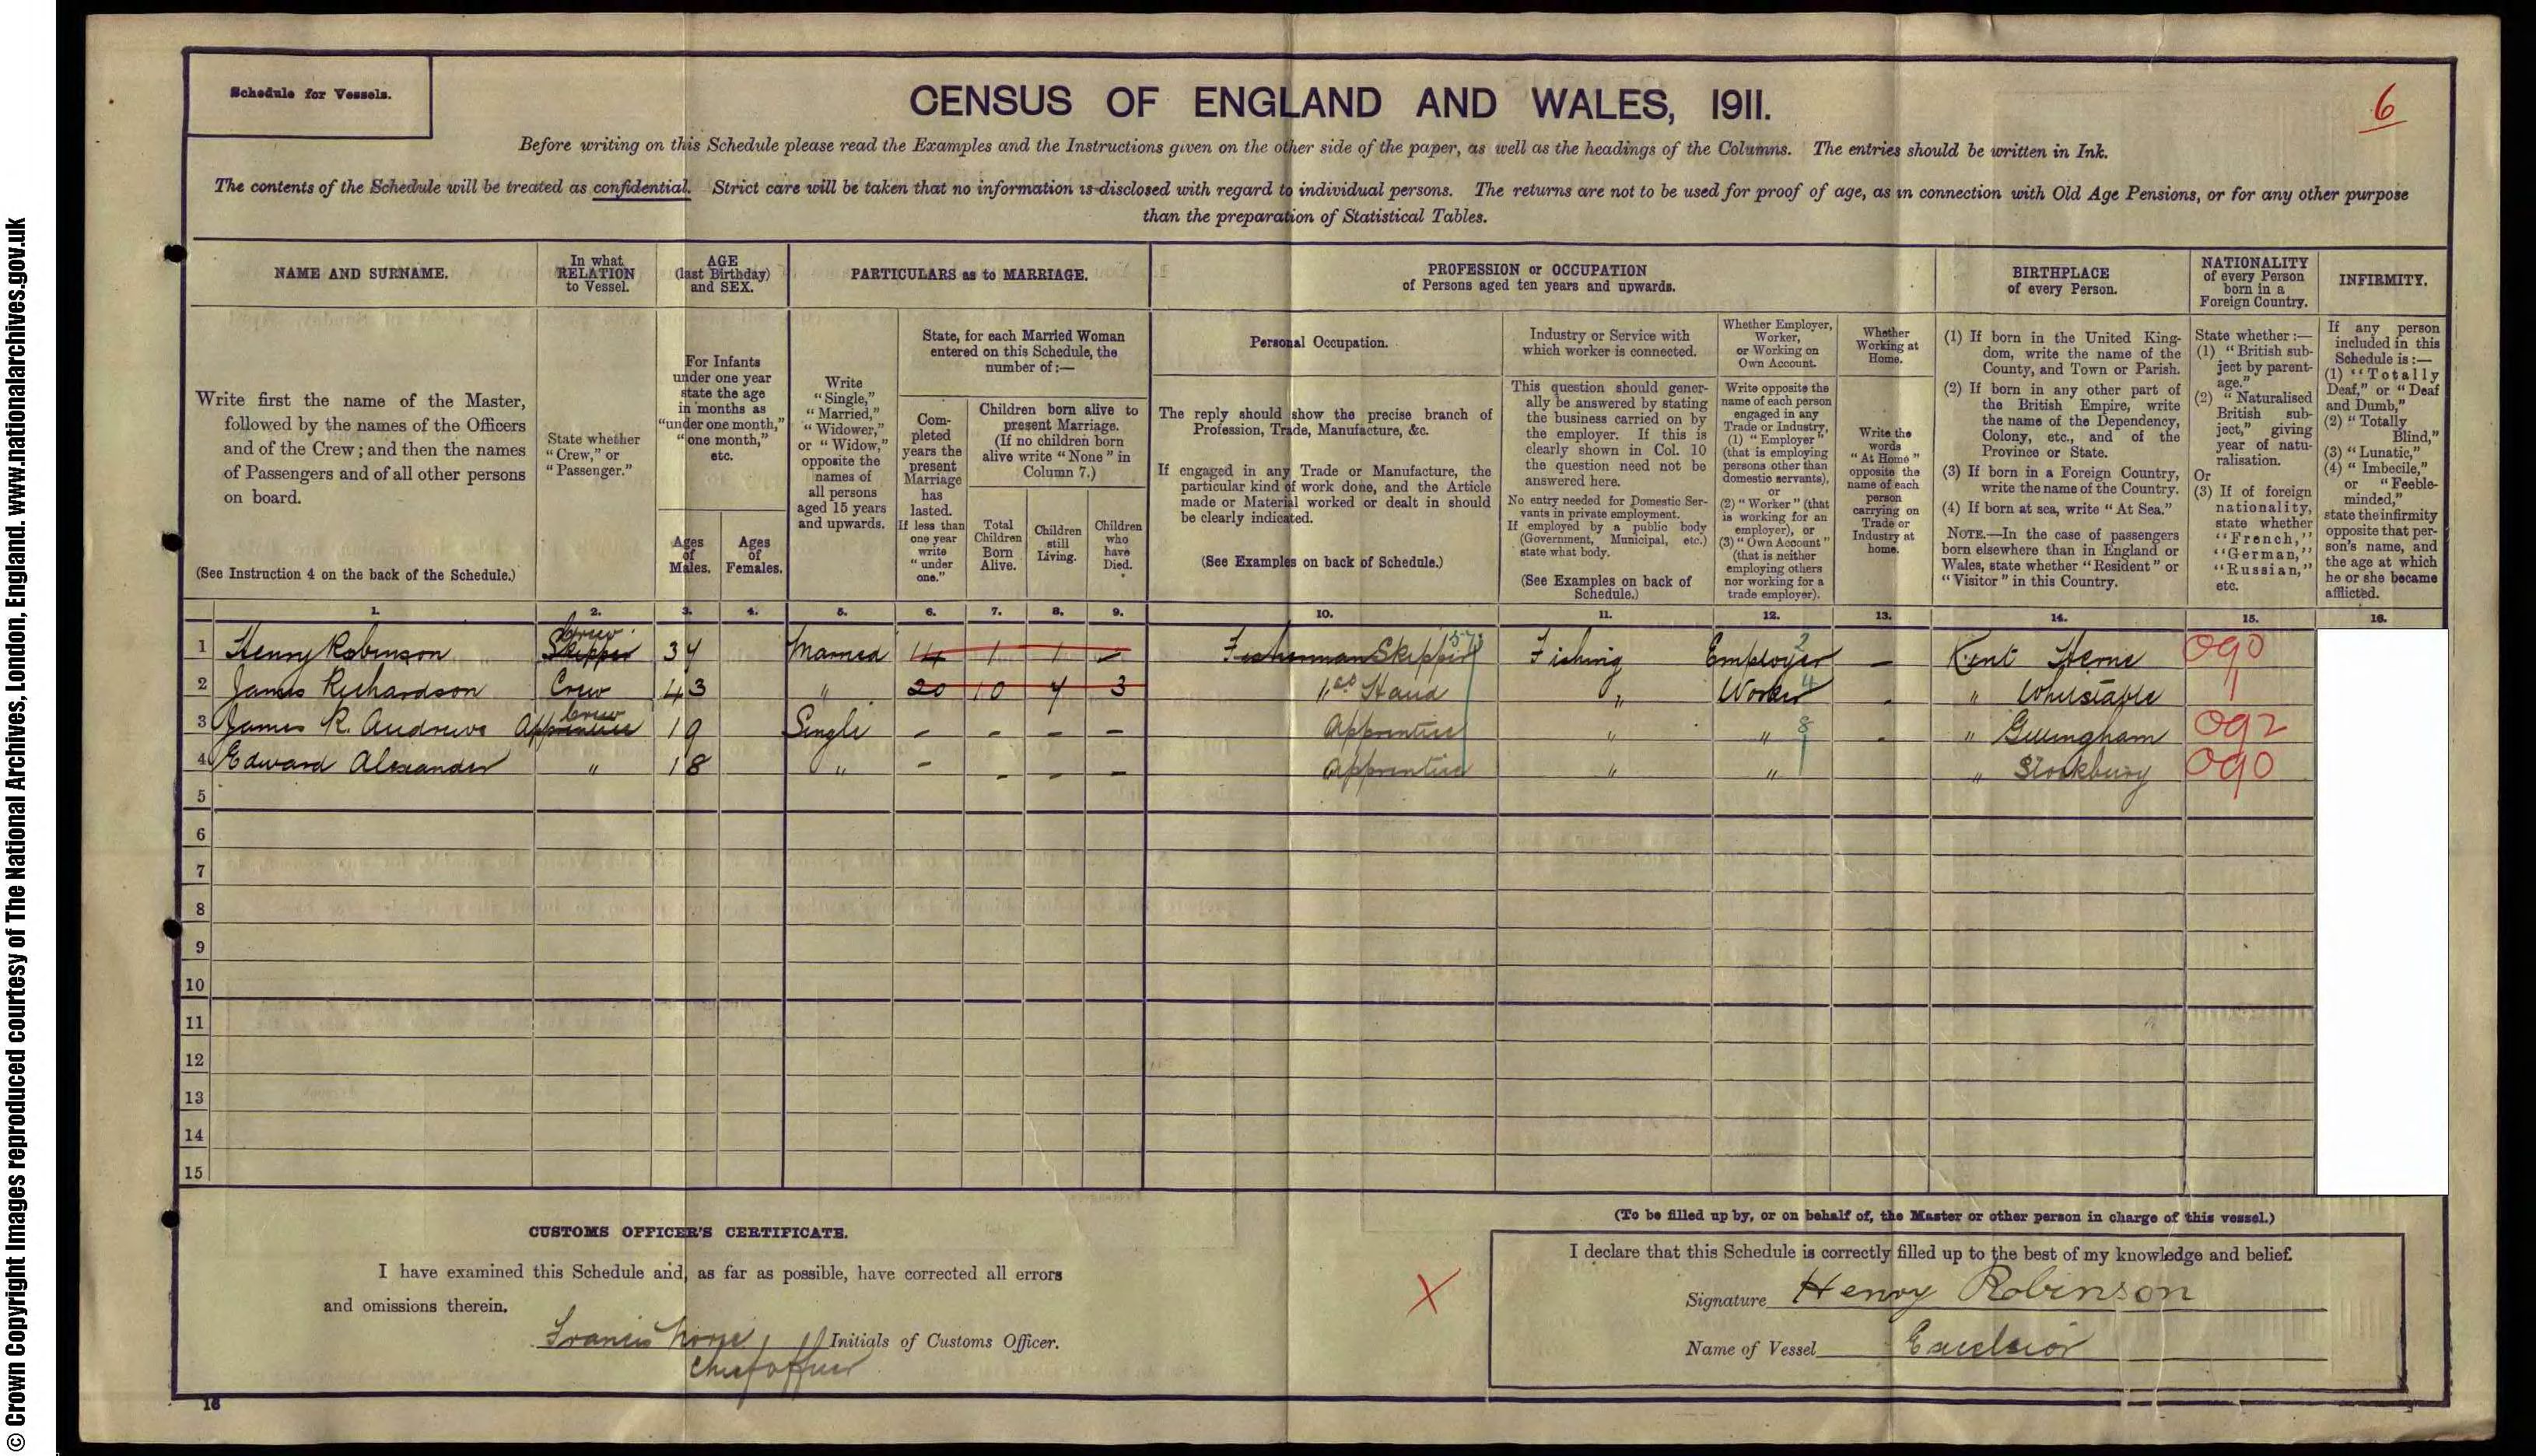 © Crown Copyright Images reproduced courtesy of The National Archives, London, England. www.nationalarchives.gov.uk
Schedule for Vessels.
CENSUS OF ENGLAND AND WALES, 1911.
6
Before writing on this Schedule please read the Examples and the Instructions given on the other side of the paper, as well as the headings of the Columns. The entries should be written in Ink.
The contents of the Schedule will be treated as confidential. Strict care will be taken that no information is disclosed with regard to individual persons. The returns are not to be used for proof of age, as in connection with Old Age Pensions, or for any other purpose
than the preparation of Statistical Tables.
NAME AND SURNAME.
Write first the name of the Master,
followed by the names of the Officers
and of the Crew; and then the names
of Passengers and of all other persons
on board.
(See Instruction 4 on the back of the Schedule.)
In what
RELATION
to Vessel.
State whether
"Crew," or
"Passenger."
AGE
(last Birthday)
and SEX.
For Infants
under one year
state the age
in months as
"under one month,"
"one month,"
etc.
Ages
of
Males.
Ages
of
Females.
PARTICULARS as to MARRIAGE.
Write
"Single,"
"Married,"
"Widower,"
or "Widow,"
opposite the
names of
all persons
aged 15 years
and upwards.
State, for each Married Woman
entered on this Schedule, the
number of:—
Com-
pleted
years the
present
Marriage
has
lasted.
If less than
one year
write
"under
one."
Children born alive to
present Marriage.
(If no children born
alive write "None" in
Column 7.)
Total
Children
Born
Alive.
Children
still
Living.
Children
who
have
Died.
PROFESSION or OCCUPATION
of Persons aged ten years and upwards.
Personal Occupation.
The reply should show the precise branch of
Profession, Trade, Manufacture, &c.
If engaged in any Trade or Manufacture, the
particular kind of work done, and the Article
made or Material worked or dealt in should
be clearly indicated.
(See Examples on back of Schedule.)
Industry or Service with
which worker is connected.
This question should gener-
ally be answered by stating
the business carried on by
the employer. If this is
clearly shown in Col. 10
the question need not be
answered here.
No entry needed for Domestic Ser-
vants in private employment.
If employed by a public body
(Government, Municipal, etc.)
state what body.
(See Examples on back of
Schedule.)
Whether Employer,
Worker,
or Working on
Own Account.
Write opposite the
name of each person
engaged in any
Trade or Industry,
(1) "Employer"
(that is employing
persons other than
domestic servants),
or
(2) "Worker" (that
is working for an
employer), or
(3) "Own Account"
(that is neither
employing others
nor working for a
trade employer).
Whether
Working at
Home.
Write the
words
"At Home"
opposite the
name of each
person
carrying on
Trade or
Industry at
home.
BIRTHPLACE
of every Person.
(1) If born in the United King-
dom, write the name of the
County, and Town or Parish.
(2) If born in any other part of
the British Empire, write
the name of the Dependency,
Colony, etc., and of the
Province or State.
(3) If born in a Foreign Country,
write the name of the Country.
(4) If born at sea, write "At Sea."
NOTE.—In the case of passengers
born elsewhere than in England or
Wales, state whether "Resident" or
"Visitor" in this Country.
NATIONALITY
of every Person
born in a
Foreign Country.
State whether:—
(1) "British sub-
ject by parent-
age."
(2) "Naturalised
British sub-
ject," giving
year of natu-
ralisation.
Or
(3) If of foreign
nationality,
state whether
"French,"
"German,"
"Russian,"
etc.
INFIRMITY.
If any person
included in this
Schedule is:—
(1) "Totally
Deaf," or "Deaf
and Dumb,"
(2) "Totally
Blind,"
(3) "Lunatic,"
(4) "Imbecile,"
or "Feeble-
minded,"
state the infirmity
opposite that per-
son's name, and
the age at which
he or she became
afflicted.
1. 2. 3. 4. 5. 6. 7. 8. 9. 10. 11. 12. 13. 14. 15. 16.
1 Henry Robinson Skipper Crew 34 Married 14 1 1 – Fisherman Skipper Fishing Employer 2 – Kent Herne 090
2 James Richardson Crew 43 " 20 10 7 3 Hand " Worker 4 - " Whitstable "
3 James R. Andrews Apprentice Crew 19 Single – – – – Apprentice " " 8 - " Gillingham 092
4 Edward Alexander " 18 " – – – – Apprentice " " " Stockbury 090
5
6
7
8
9
10
11
12
13
14
15
CUSTOMS OFFICER'S CERTIFICATE.
I have examined this Schedule and, as far as possible, have corrected all errors
and omissions therein.
Francis Initials of Customs Officer.
Chief Officer
(To be filled up by, or on behalf of, the Master or other person in charge of this vessel.)
I declare that this Schedule is correctly filled up to the best of my knowledge and belief.
Signature Henry Robinson
Name of Vessel Excelsior
X
16